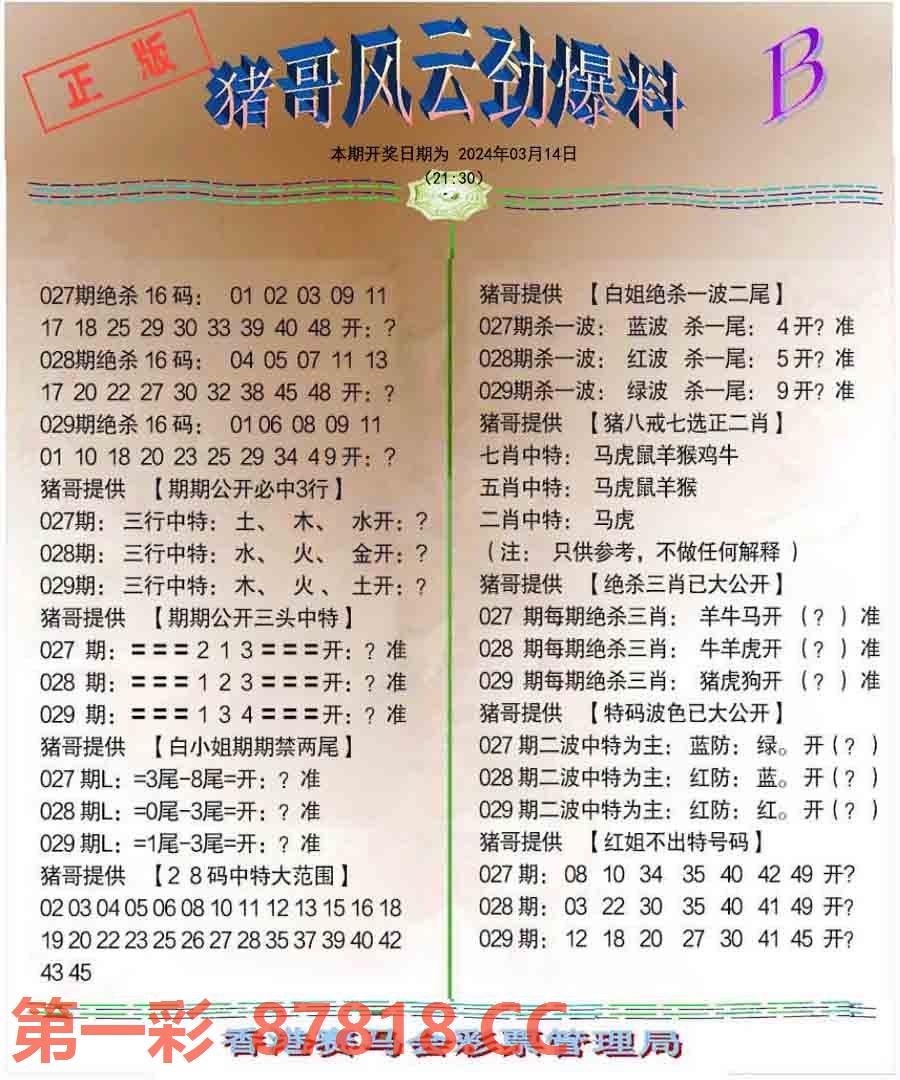 正版
猪哥风云劲爆料
B
本期开奖日期为 2024年03月14日
(21:30)
027期绝杀16码： 01 02 03 09 11
17 18 25 29 30 33 39 40 48 开：?
028期绝杀16码： 04 05 07 11 13
17 20 22 27 30 32 38 45 48 开：?
029期绝杀16码： 01 06 08 09 11
01 10 18 20 23 25 29 34 49 开：?
猪哥提供 【期期公开必中3行】
027期：三行中特：土、 木、 水开：?
028期：三行中特：水、 火、 金开：?
029期：三行中特：木、 火、 土开：?
猪哥提供 【期期公开三头中特】
027 期：〓〓〓 2 1 3 〓〓〓开：? 准
028 期：〓〓〓 1 2 3 〓〓〓开：? 准
029 期：〓〓〓 1 3 4 〓〓〓开：? 准
猪哥提供 【白小姐期期禁两尾】
027 期L：=3尾-8尾=开：? 准
028 期L：=0尾-3尾=开：? 准
029 期L：=1尾-3尾=开：? 准
猪哥提供 【２８码中特大范围】
02 03 04 05 06 08 10 11 12 13 15 16 18
19 20 22 23 25 26 27 28 35 37 39 40 42
43 45
猪哥提供 【白姐绝杀一波二尾】
027期杀一波： 蓝波 杀一尾： 4开? 准
028期杀一波： 红波 杀一尾： 5开? 准
029期杀一波： 绿波 杀一尾： 9开? 准
猪哥提供 【猪八戒七选正二肖】
七肖中特： 马虎鼠羊猴鸡牛
五肖中特： 马虎鼠羊猴
二肖中特： 马虎
（注： 只供参考，不做任何解释 ）
猪哥提供 【绝杀三肖已大公开】
027 期每期绝杀三肖： 羊牛马开 （? ）准
028 期每期绝杀三肖： 牛羊虎开 （? ）准
029 期每期绝杀三肖： 猪虎狗开 （? ）准
猪哥提供 【特码波色已大公开】
027 期二波中特为主：蓝防：绿。开（? ）
028 期二波中特为主：红防：蓝。开（? ）
029 期二波中特为主：红防：红。开（? ）
猪哥提供 【红姐不出特号码】
027 期： 08 10 34 35 40 42 49 开?
028 期： 03 22 30 35 40 41 49 开?
029 期： 12 18 20 27 30 41 45 开?
第一彩 87818.CC
香港赛马会彩票管理局